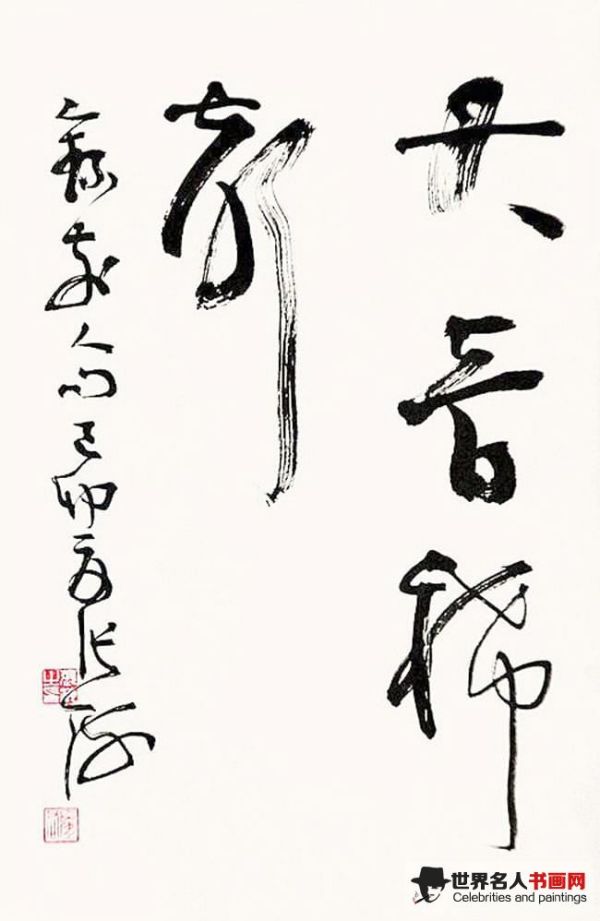 大音稀
声
录古人句己卯夏张海
世界名人书画网
Celebrities and paintings